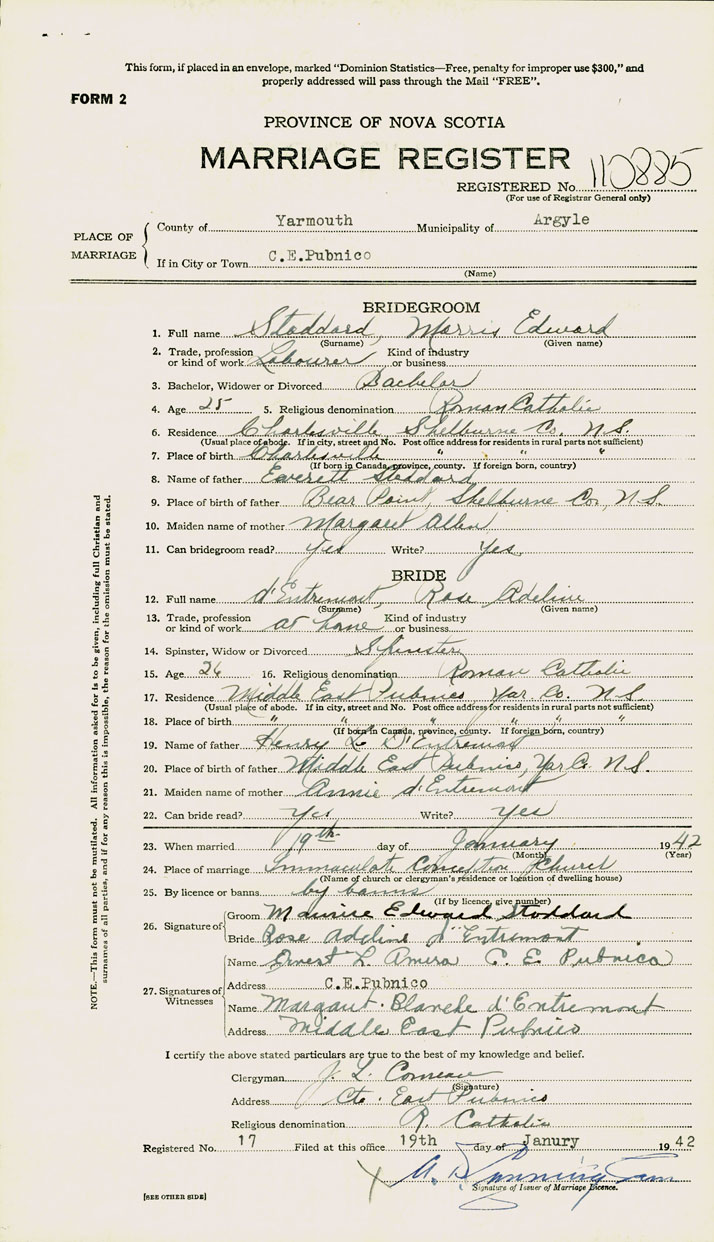 This form, if placed in an envelope, marked "Dominion Statistics—Free, penalty for improper use $300," and
properly addressed will pass through the Mail "FREE".
FORM 2
PROVINCE OF NOVA SCOTIA
MARRIAGE REGISTER
REGISTERED No. 110885
(For use of Registrar General only)
PLACE OF MARRIAGE
County of Yarmouth Municipality of Argyle
If in City or Town C.E.Pubnico
(Name)
BRIDEGROOM
1. Full name Stoddard, Morris Edward
(Surname) (Given name)
2. Trade, profession or kind of work Labourer Kind of industry or business
3. Bachelor, Widower or Divorced Bachelor
4. Age 25 5. Religious denomination Roman Catholic
6. Residence Charlesville Shelburne Co. N.S.
(Usual place of abode. If in city, street and No. Post office address for residents in rural parts not sufficient)
7. Place of birth Charlesville " " "
(If born in Canada, province, county. If foreign born, country)
8. Name of father Everett Stoddard
9. Place of birth of father Bear Point, Shelburne Co., N.S.
10. Maiden name of mother Margaret Allen
11. Can bridegroom read? Yes Write? Yes.
BRIDE
12. Full name d'Entremont, Rose Adeline
(Surname) (Given name)
13. Trade, profession or kind of work at home Kind of industry or business
14. Spinster, Widow or Divorced Spinster
15. Age 26 16. Religious denomination Roman Catholic
17. Residence Middle East Pubnico Yar. Co. N.S.
(Usual place of abode. If in city, street and No. Post office address for residents in rural parts not sufficient)
18. Place of birth " " " " " "
(If born in Canada, province, county. If foreign born, country)
19. Name of father Henry L. D'Entremont
20. Place of birth of father Middle East Pubnico, Yar Co. N.S.
21. Maiden name of mother Annie d'Entremont
22. Can bride read? Yes Write? Yes
23. When married 19th day of January 1942
(Month) (Year)
24. Place of marriage Immaculate Conception Church
(Name of church or clergyman's residence or location of dwelling house)
25. By licence or banns by banns
(If by licence, give number)
26. Signature of
Groom Maurice Edward Stoddard
Bride Rose Adeline d'Entremont
27. Signatures of Witnesses
Name Ernest L Amero C. E. Pubnico
Address C.E.Pubnico
Name Margaret Blanche d'Entremont
Address Middle East Pubnico
I certify the above stated particulars are true to the best of my knowledge and belief.
Clergyman J. L. Comeau
(Signature)
Address Ctr. East Pubnico
Religious denomination R. Catholic
Registered No. 17 Filed at this office 19th day of Janury 1942
Signature of Issuer of Marriage Licence.
[SEE OTHER SIDE]
NOTE.—This form must not be mutilated. All information asked for is to be given, including full Christian and
surnames of all parties, and if for any reason this is impossible, the reason for the omission must be stated.